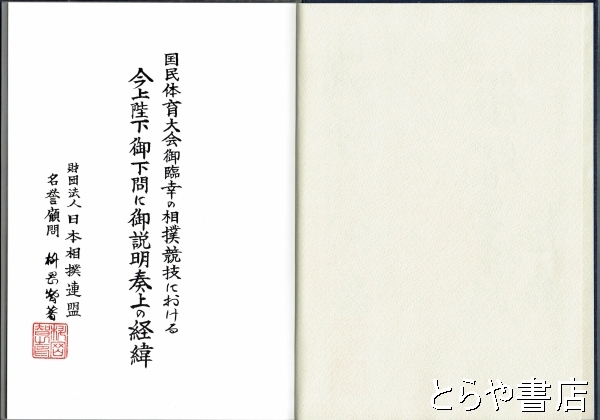 国民体育大会御臨幸の相撲競技における
今上陛下御下問に御説明奏上の経緯
財団法人日本相撲連盟
名誉顧問
とらや書店